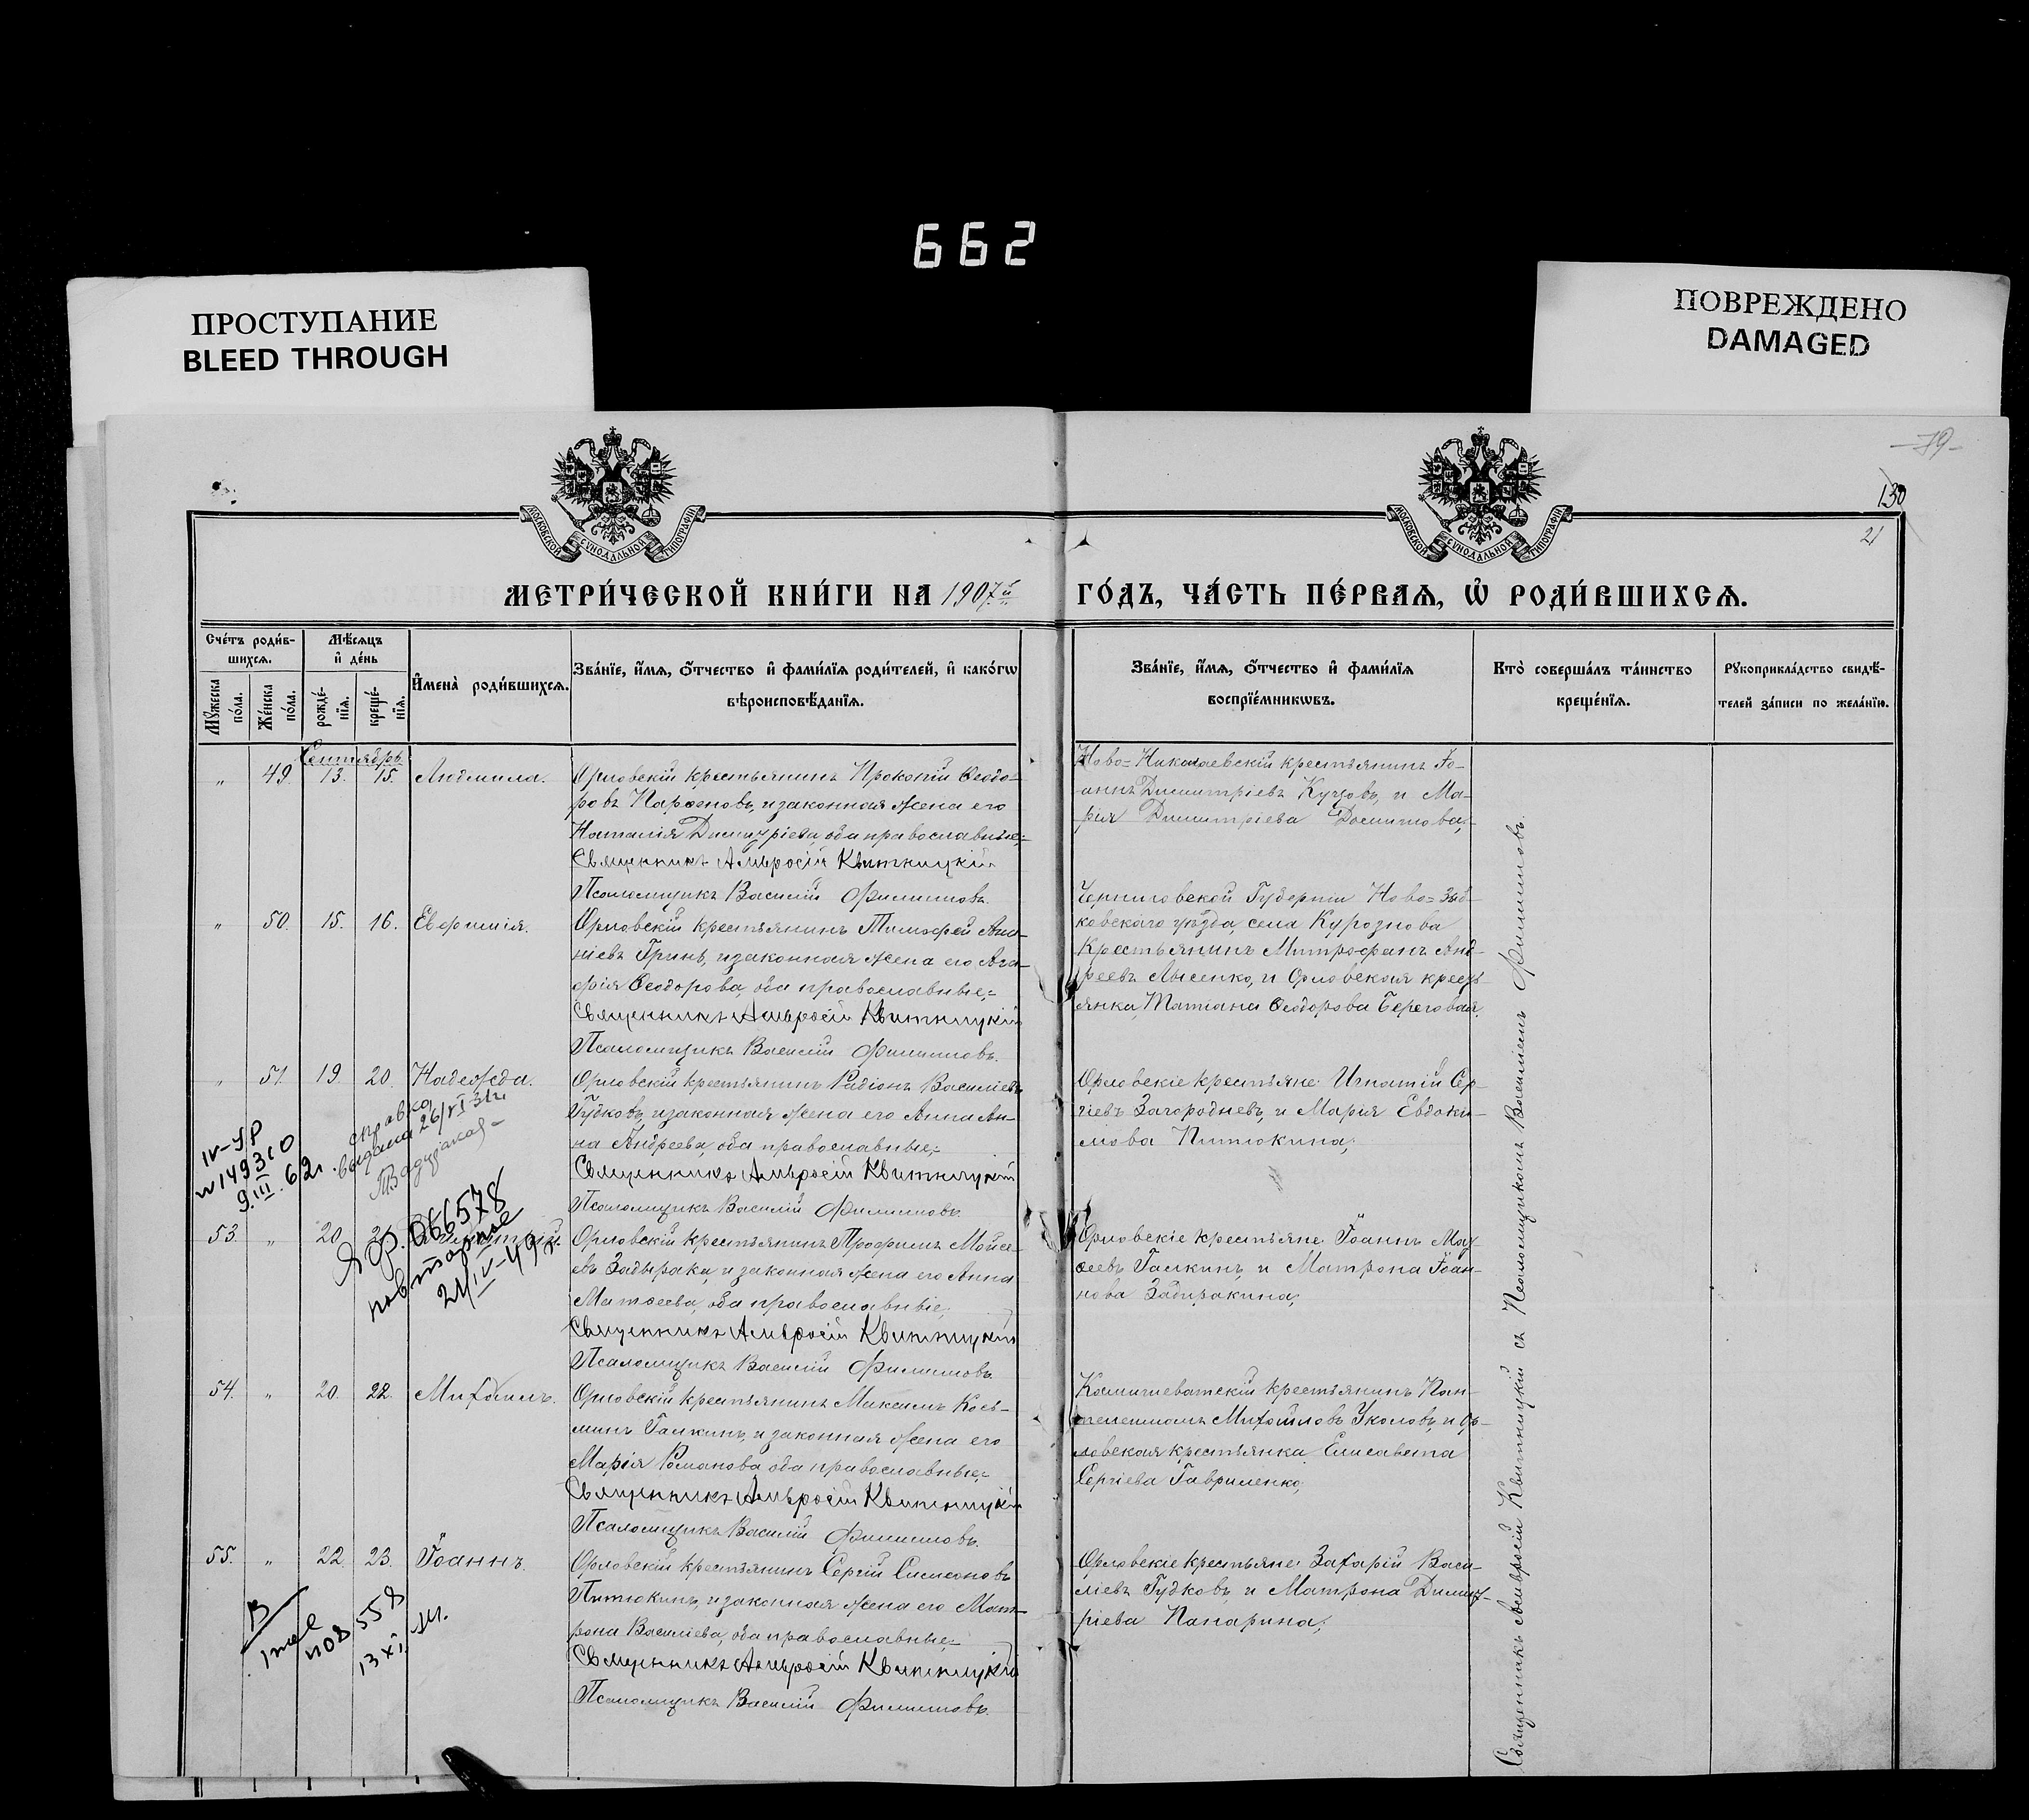 662
ПРОСТУПАНИЕ
BLEED THROUGH
ПОВРЕЖДЕНО
DAMAGED
-79-
130
21
МОСКОВСКОЙ СѴНОДАЛЬНОЙ ТИПОГРАФІИ
МОСКОВСКОЙ СѴНОДАЛЬНОЙ ТИПОГРАФІИ
МЕТРИ́ЧЕСКОЙ КНИ́ГИ НА 1907й ГО́ДЪ, ЧА́СТЬ ПЕ́РВАѦ, Ѡ҆ РОДИ́ВШИХСѦ.
Сче́тъ роди́в-
шихсѧ.
Мѣ́сѧцъ
и҆ де́нь
Мꙋ́жеска
по́ла.
Же́нска
по́ла.
рожде́-
нїѧ.
креще́-
нїѧ.
И҆мена̀ роди́вшихсѧ.
Зва́нїе, и҆́мѧ, ѻ҆́тчество и҆ фами́лїѧ роди́телей, и҆ како́гѡ
вѣроисповѣ́данїѧ.
Зва́нїе, и҆́мѧ, ѻ҆́тчество и҆ фами́лїѧ
воспрїе́мникѡвъ.
Кто̀ соверша́лъ та́инство
креще́нїѧ.
Рꙋкоприкла́дство свидѣ́-
телей за́писи по жела́нїю.
Сентябрь
" 49. 13. 15. Людмила.
Орловскій крестьянинъ Прокопій Ѳеодо-
ровъ Парѳеновъ, и законная жена его
Наталія Димитріева, оба православные;
Священникъ Амвросій Квитницкій
Псаломщикъ Василій Филимовъ.
Ново-Николаевскій крестьянинъ Іо-
аннъ Димитріевъ Куцовъ, и Ма-
рія Димитріева
" 50. 15. 16. Евфимія.
Орловскій крестьянинъ Тимофей Ана-
ніевъ Гринь, и законная жена его Ага-
фія Ѳеодорова, оба православные;
Священникъ Амвросій Квитницкій
Псаломщикъ Василій Филимовъ.
Черниговской Губерніи Ново-Зыб-
ковскаго уѣзда, села Курознова
крестьянинъ Митрофанъ Анд-
реевъ Лысенко, и Орловская кресть-
янка, Татіана Ѳеодорова Береговая.
" 51. 19. 20. Надежда.
Орловскій крестьянинъ Радіонъ Василіевъ
Гудковъ, и законная жена его Анна Ан-
на Андреева, оба православные;
Священникъ Амвросій Квитницкій
Псаломщикъ Василій Филимовъ.
Орловскіе крестьяне: Игнатій Сер-
гіевъ Загородневъ, и Марія Евдоки-
мова Питюкина;
IV-УР
№149310
9.III.62г.
справка
выдана 26/VI 31г.
53. " 20. 21.
ЯР. 066578
повторное
21/IV-49г.
Орловскій крестьянинъ Трофимъ Мойсе-
евъ Задырака, и законная жена его Анна
Матѳеева, оба православные;
Священникъ Амвросій Квитницкій
Псаломщикъ Василій Филимовъ.
Орловскіе крестьяне: Іоаннъ Мат-
ѳеевъ Галкинъ, и Матрона Іоан-
нова Задиракина;
54. " 20. 22. Михаилъ.
Орловскій крестьянинъ Максимъ Кось-
минъ Галкинъ, и законная жена его
Марія Романова, оба православные;
Священникъ Амвросій Квитницкій
Псаломщикъ Василій Филимовъ.
Камышеватскій крестьянинъ Пан-
телеимонъ Михайловъ Уколовъ, и Ор-
ловская крестьянка Елисавета
Сергіева Гавриленко;
55. " 22. 23. Іоаннъ.
Орловскій крестьянинъ Сергій Симеоновъ
Питюкинъ, и законная жена его Мат-
рона Василіева, оба православные;
Священникъ Амвросій Квитницкій
Псаломщикъ Василій Филимовъ.
Орловскіе крестьяне: Захарій Васи-
ліевъ Гудковъ, и Матрона Димит-
ріева Папарина;
558
13 XI
Священникъ Амвросій Квитницкій съ Псаломщикомъ Василіемъ Филимовъ.